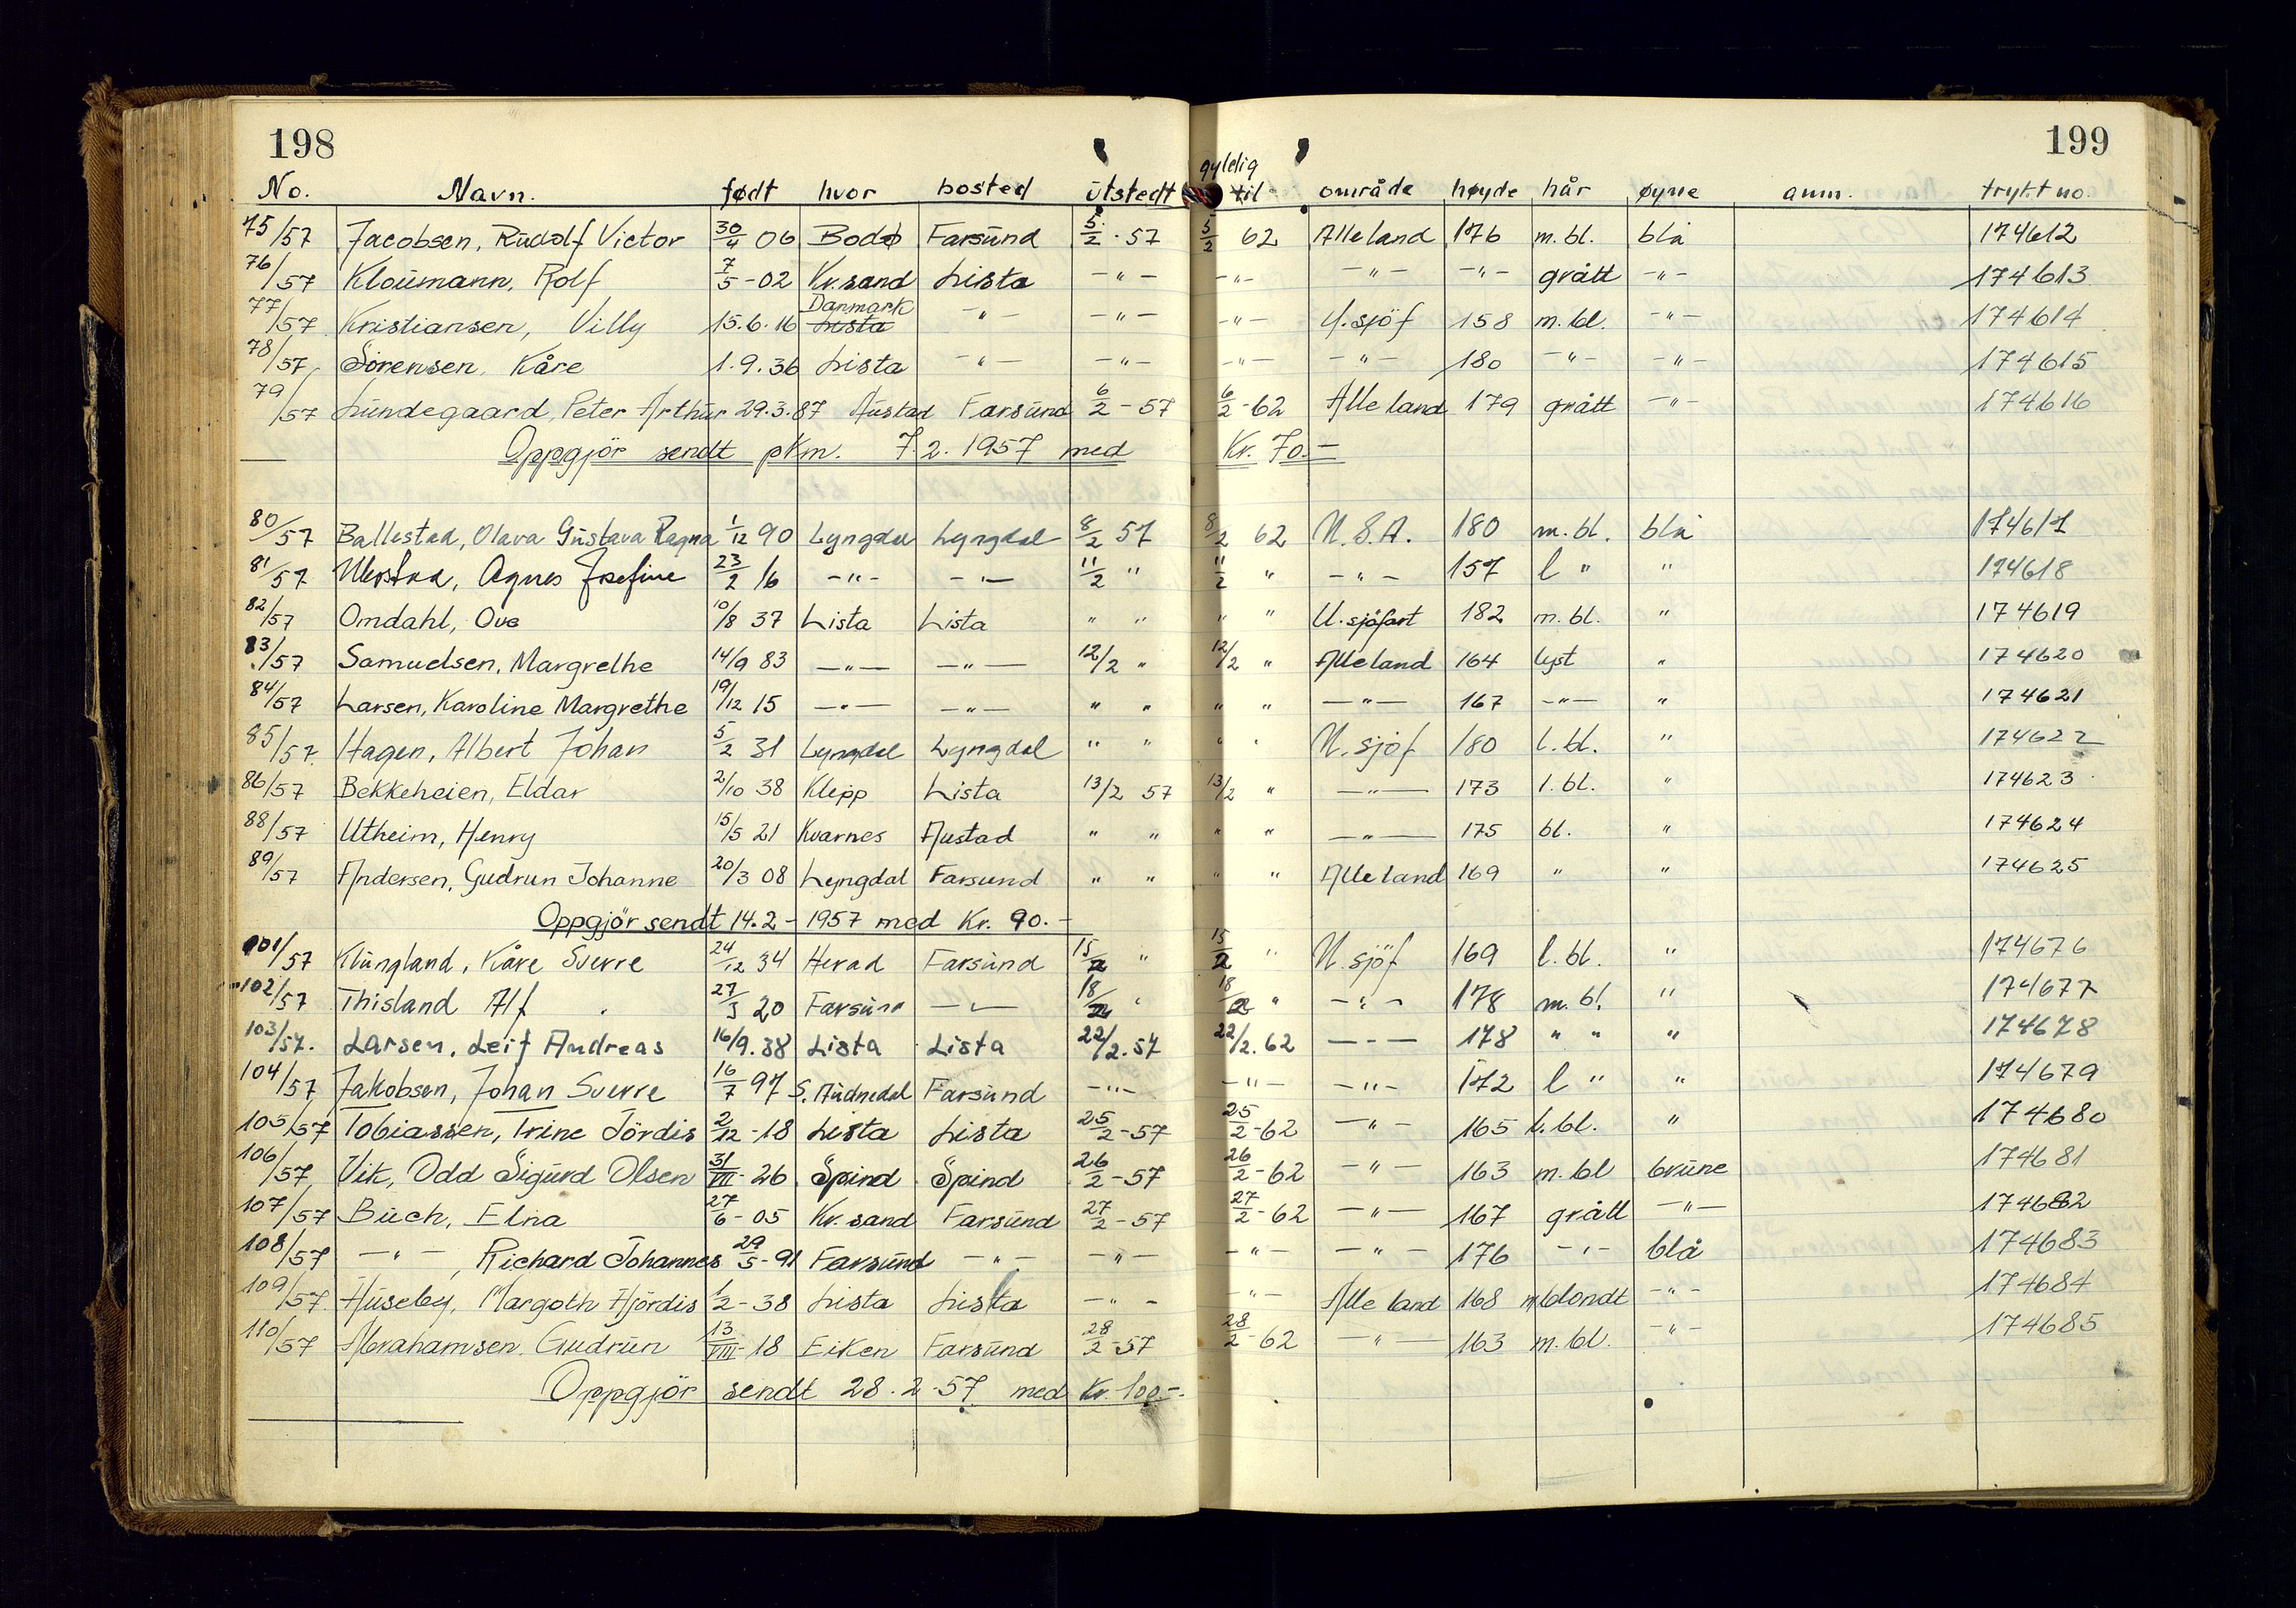 198 199
gyldig
No. Navn. født hvor bosted utstedt til område høyde hår øyne anm. trykt no.
75/57 Jacobsen, Rudolf Victor 30/4 06 Bodø Farsund 5/2 . 57 5/2 62 Alle land 176 m. bl. blå 174612
76/57 Kloumann, Rolf 7/5 - 02 Kr.sand Lista -"- -"- -"- -"- grått -"- 174613
77/57 Kristiansen, Villy 15.6.16 Danmark Lista -"- -"- -"- U.sjöf 158 m. bl. -"- 174614
78/57 Sörensen, Kåre 1.9.36 Lista -"- -"- -"- -"- 180 -"- -"- 174615
79/57 Lundegaard, Peter Arthur 29.3.87 Austad Farsund 6/2 - 57 6/2 - 62 Alle land 179 grått -"- 174616
Oppgjör sendt pKm. 7.2.1957 med Kr. 70.-
80/57 Ballestad, Olava Gustava Ragna 1/12 90 Lyngdal Lyngdal 8/2 57 8/2 62 U.S.A. 180 m. bl. blå 174617
81/57 Agnes Josefine 23/2 16 -"- -"- 11/2 " 11/2 " -"- 157 l " " 174618
82/57 Omdahl, Ove 10/8 37 Lista Lista " " " " U.sjöfart 182 m. bl. " 174619
83/57 Samuelsen, Margrethe 14/9 83 -"- -"- 12/2 " 12/2 " Alle land 164 lyst " 174620
84/57 Larsen, Karoline Margrethe 19/12 15 -"- -"- " " " " -"- 167 -"- " 174621
85/57 Hagen, Albert Johan 5/2 31 Lyngdal Lyngdal " " " " U. sjöf 180 l. bl. " 174622
86/57 Bekkeheien, Eldar 2/10 38 Klepp Lista 13/2 57 13/2 " -"- 173 l. bl. " 174623
88/57 Utheim, Henry 15/5 21 Kvarnes Austad " " " " -"- 175 bl. " 174624
89/57 Andersen, Gudrun Johanne 20/3 08 Lyngdal Farsund " " " " Alle land 169 " " 174625
Oppgjör sendt 14.2 - 1957 med Kr. 90.-
101/57 Klungland, Kåre Sverre 24/12 34 Herad Farsund 15/2 " 15/2 " U. sjöf 169 l. bl. " 174676
102/57 Thisland Alf 27/3 20 Farsund -"- 18/2 " 18/2 " -"- 178 m. bl. " 174677
103/57. Larsen, Leif Andreas 16/9.38 Lista Lista 22/2.57 22/2.62 -"- 178 " " " 174678
104/57 Jakobsen, Johan Sverre 16/7 97 S. Audnedal Farsund -"- -"- -"- 172 l " " 174679
105/57 Tobiassen, Trine Jördis 2/12 - 18 Lista Lista 25/2 - 57 25/2 - 62 -"- 165 l. bl. " 174680
106/57 Vik, Odd Sigurd Olsen 31/VIII - 26 Spind Spind 26/2 - 57 26/2 - 62 -"- 163 m. bl brune 174681
107/57 Buch, Elna 27/6 - 05 Kr. sand Farsund 27/2 - 57 27/2 - 62 -"- 167 grått -"- 174682
108/57 -"-, Richard Johannes 29/5 - 91 Farsund -"- -"- -"- -"- 176 -"- blå 174683
109/57 Huseby, Margoth Hjördis 1/2 - 38 Lista Lista -"- -"- Alle land 168 m blondt -"- 174684
110/57 Abrahamsen Gudrun 13/VIII - 18 Eiken Farsund 28/2 - 57 28/2 - 62 -"- 163 m. bl. -"- 174685
Oppgjör sendt 28.2-57 med Kr. 100.-